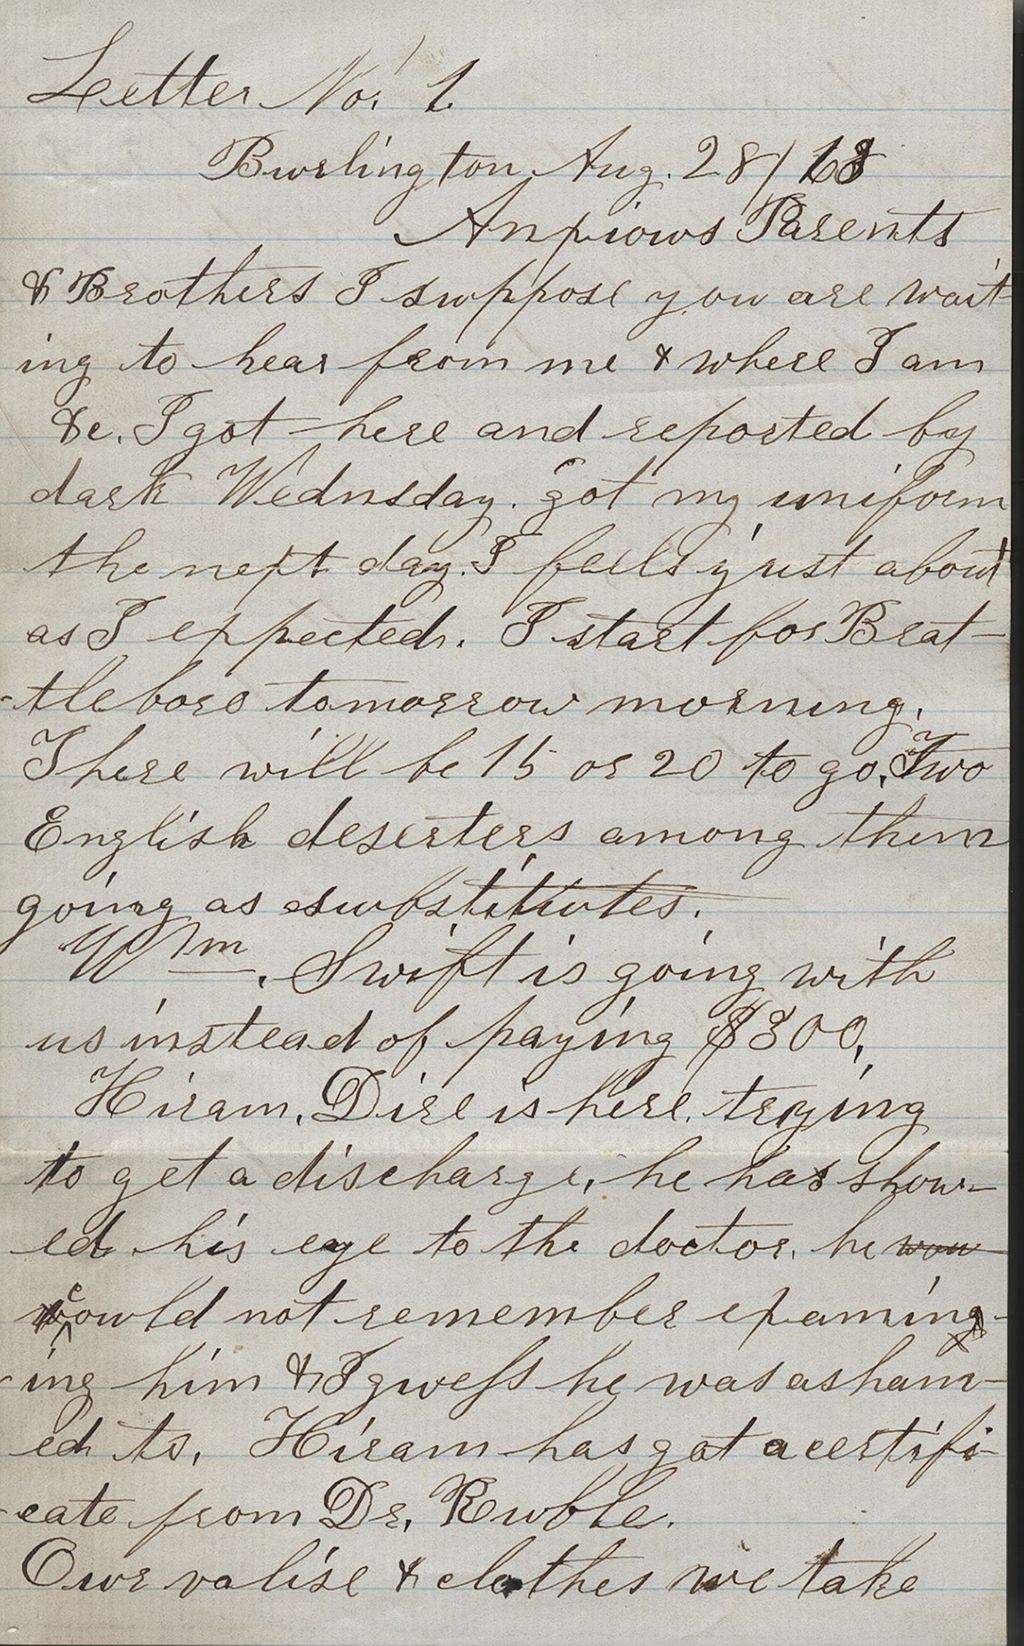 Letter No. 1
Burlington Aug. 28/63
Anxious Parents
& Brothers I suppose you are wait
ing to hear from me & where I am
&c. I got here and reported by
dark Wednsday. got my uniform
the next day. I feels just about
as I expected. I start for Brat-
-tleboro tomorrow morning.
There will be 15 or 20 to go, Two
English deserters among them
going as substitutes.
Wm. Swift is going with
us instead of paying $300,
Hiram, Dire is here trying
to get a discharge, he has show-
ed his eye to the doctor, he wou
could not remember examing-
-ing him & I guess he was asham-
ed to, Hiram has got a certifi-
-cate from Dr. Ruble.
Our valise & clothes we take